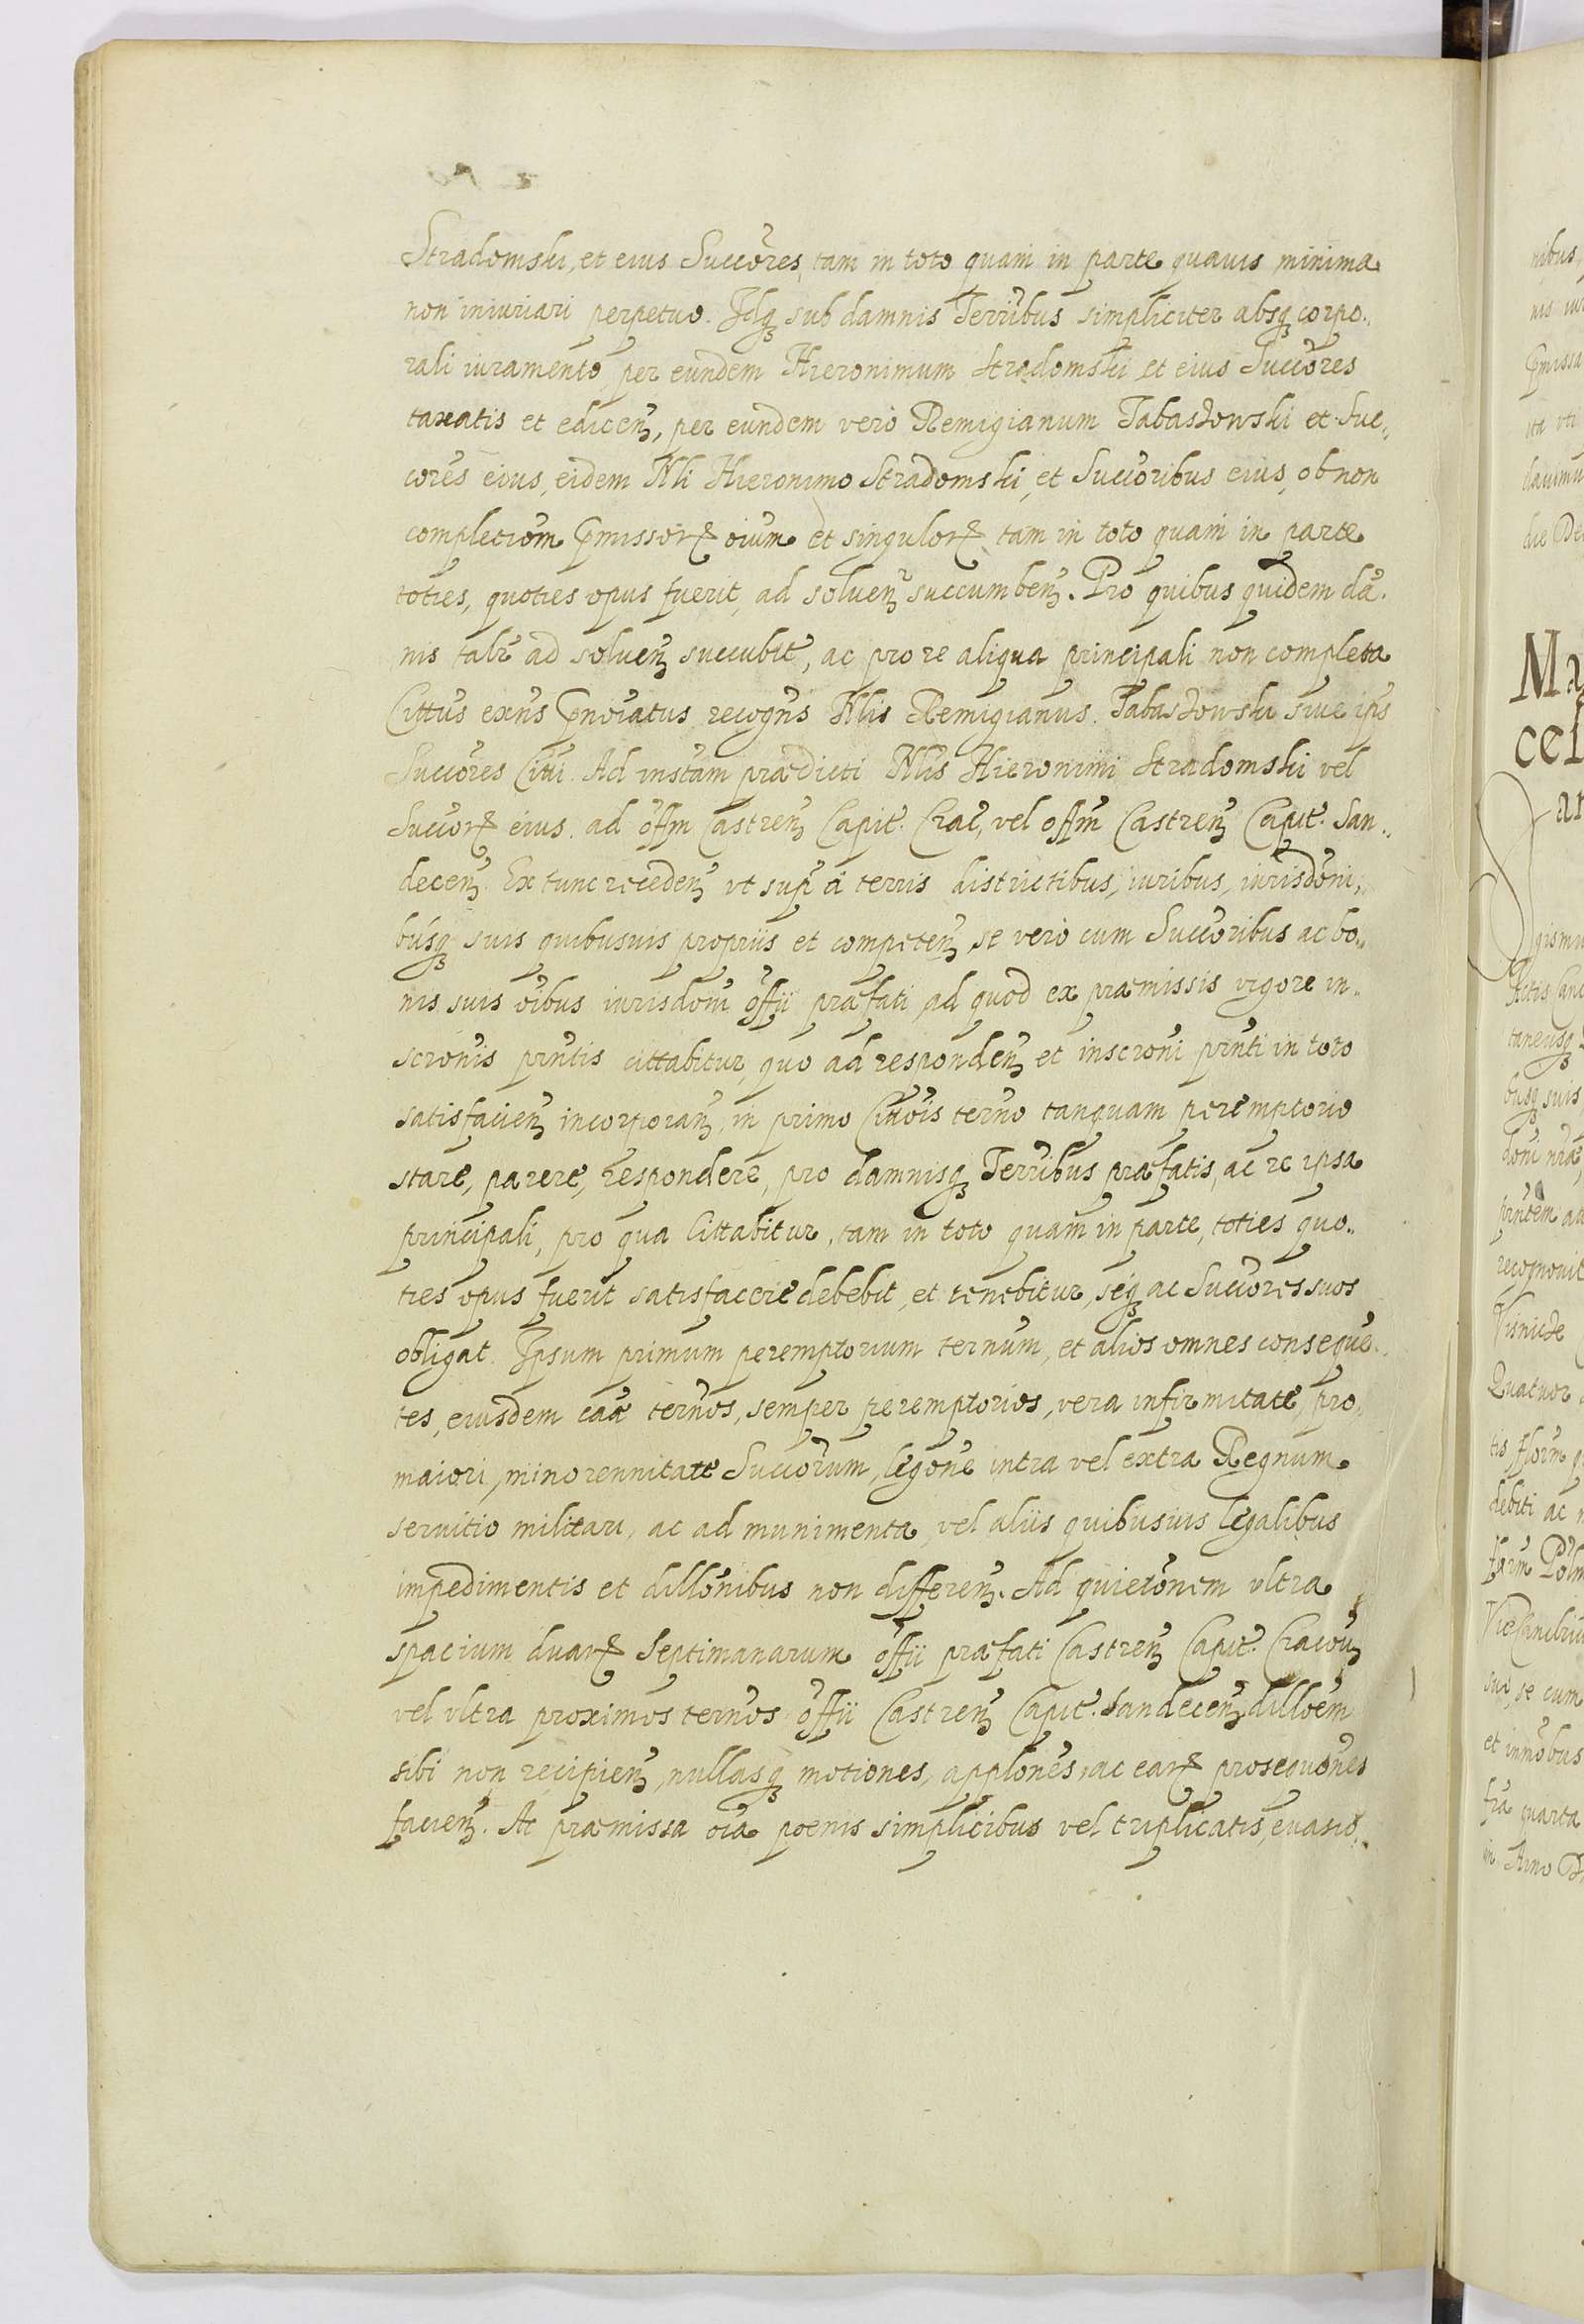 Stradomski, et eius Succőres, tam in toto quam in parte quauis minima
non iniuriari perpetuo. Idq₃ sub damnis Terrībus simpliciter absq₃ corpo..
rali iuramento, per eundem Hieronimum Stradomski et eius Succőres
taxatis et edicen₃, per eundem vero Remigianum Jabaskowski et Suc,,
cores eius, eidem Nli Hieronimo Stradomski, et Succoribus eius, ob non
completiom pmissoꝝ oium et singuloꝝ tam in toto quam in parte
toties, quoties opus fuerit, ad soluen₃ succumben₃. Pro quibus quidem dā.
nis talr ad soluen₃ succubit, ac pro re aliqua principali non completa
Cittus exns pnoiatus recogns Nlis Remigianus Jabaskowski siue ipi
Succőres Citti. Ad instam prædicti Nlis Hieronimi Stradomski vel
Succoꝝ eius. ad offm Castren₃ Capit. Crac, vel offm Castren₃ Capit. San..
decen₃. Ex tunc receden₃ vt supr a terris districtibus, iuribus, iurisdoni,,
busq₃ suis quibusuis propriis et competen₃, se vero cum Succoribus ac bo..
nis suis oibus iurisdoni offii præfati, ad quod ex præmissis vigore in..
scronis prntis cittabitur, quo ad responden₃ et inscroni prnti in toto
satisfacien₃ incorporan₃, in primo Cittois terno tanquam peremptorio
stare, parere, respondere, pro damnisq₃ Terribus præfatis, ac re ipsa
principali, pro qua Cittabitur, tam in toto quam in parte, toties quo..
ties opus fuerit satisfaccre debebit, et tenebitur, seq₃ ac Succőres suos
obligat. Ipsum primum peremptorium ternum, et alios omnes conseque..
tes, eiusdem caæ ternos, semper peremptorios, vera infirmitate, pro,,
maiori, minorennitate Succorum, legone intra vel extra Regnum
seruitio militari, ac ad munimenta, vel aliis quibusuis legalibus
impedimentis et dillonibus non differen₃. Ad quietonem vltra
spacium duaꝝ Septimanarum offii præfati Castren₃ Capit. Cracou₃
vel vltra proximos ternos offii Castren₃ Capit. Sandecen₃ dilloem
sibi non recipien₃, nullasq₃ motiones, applones, ac eaꝝ prosequones
facien₃. At præmissa oia poenis simplicibus vel triplicatis, euasio..